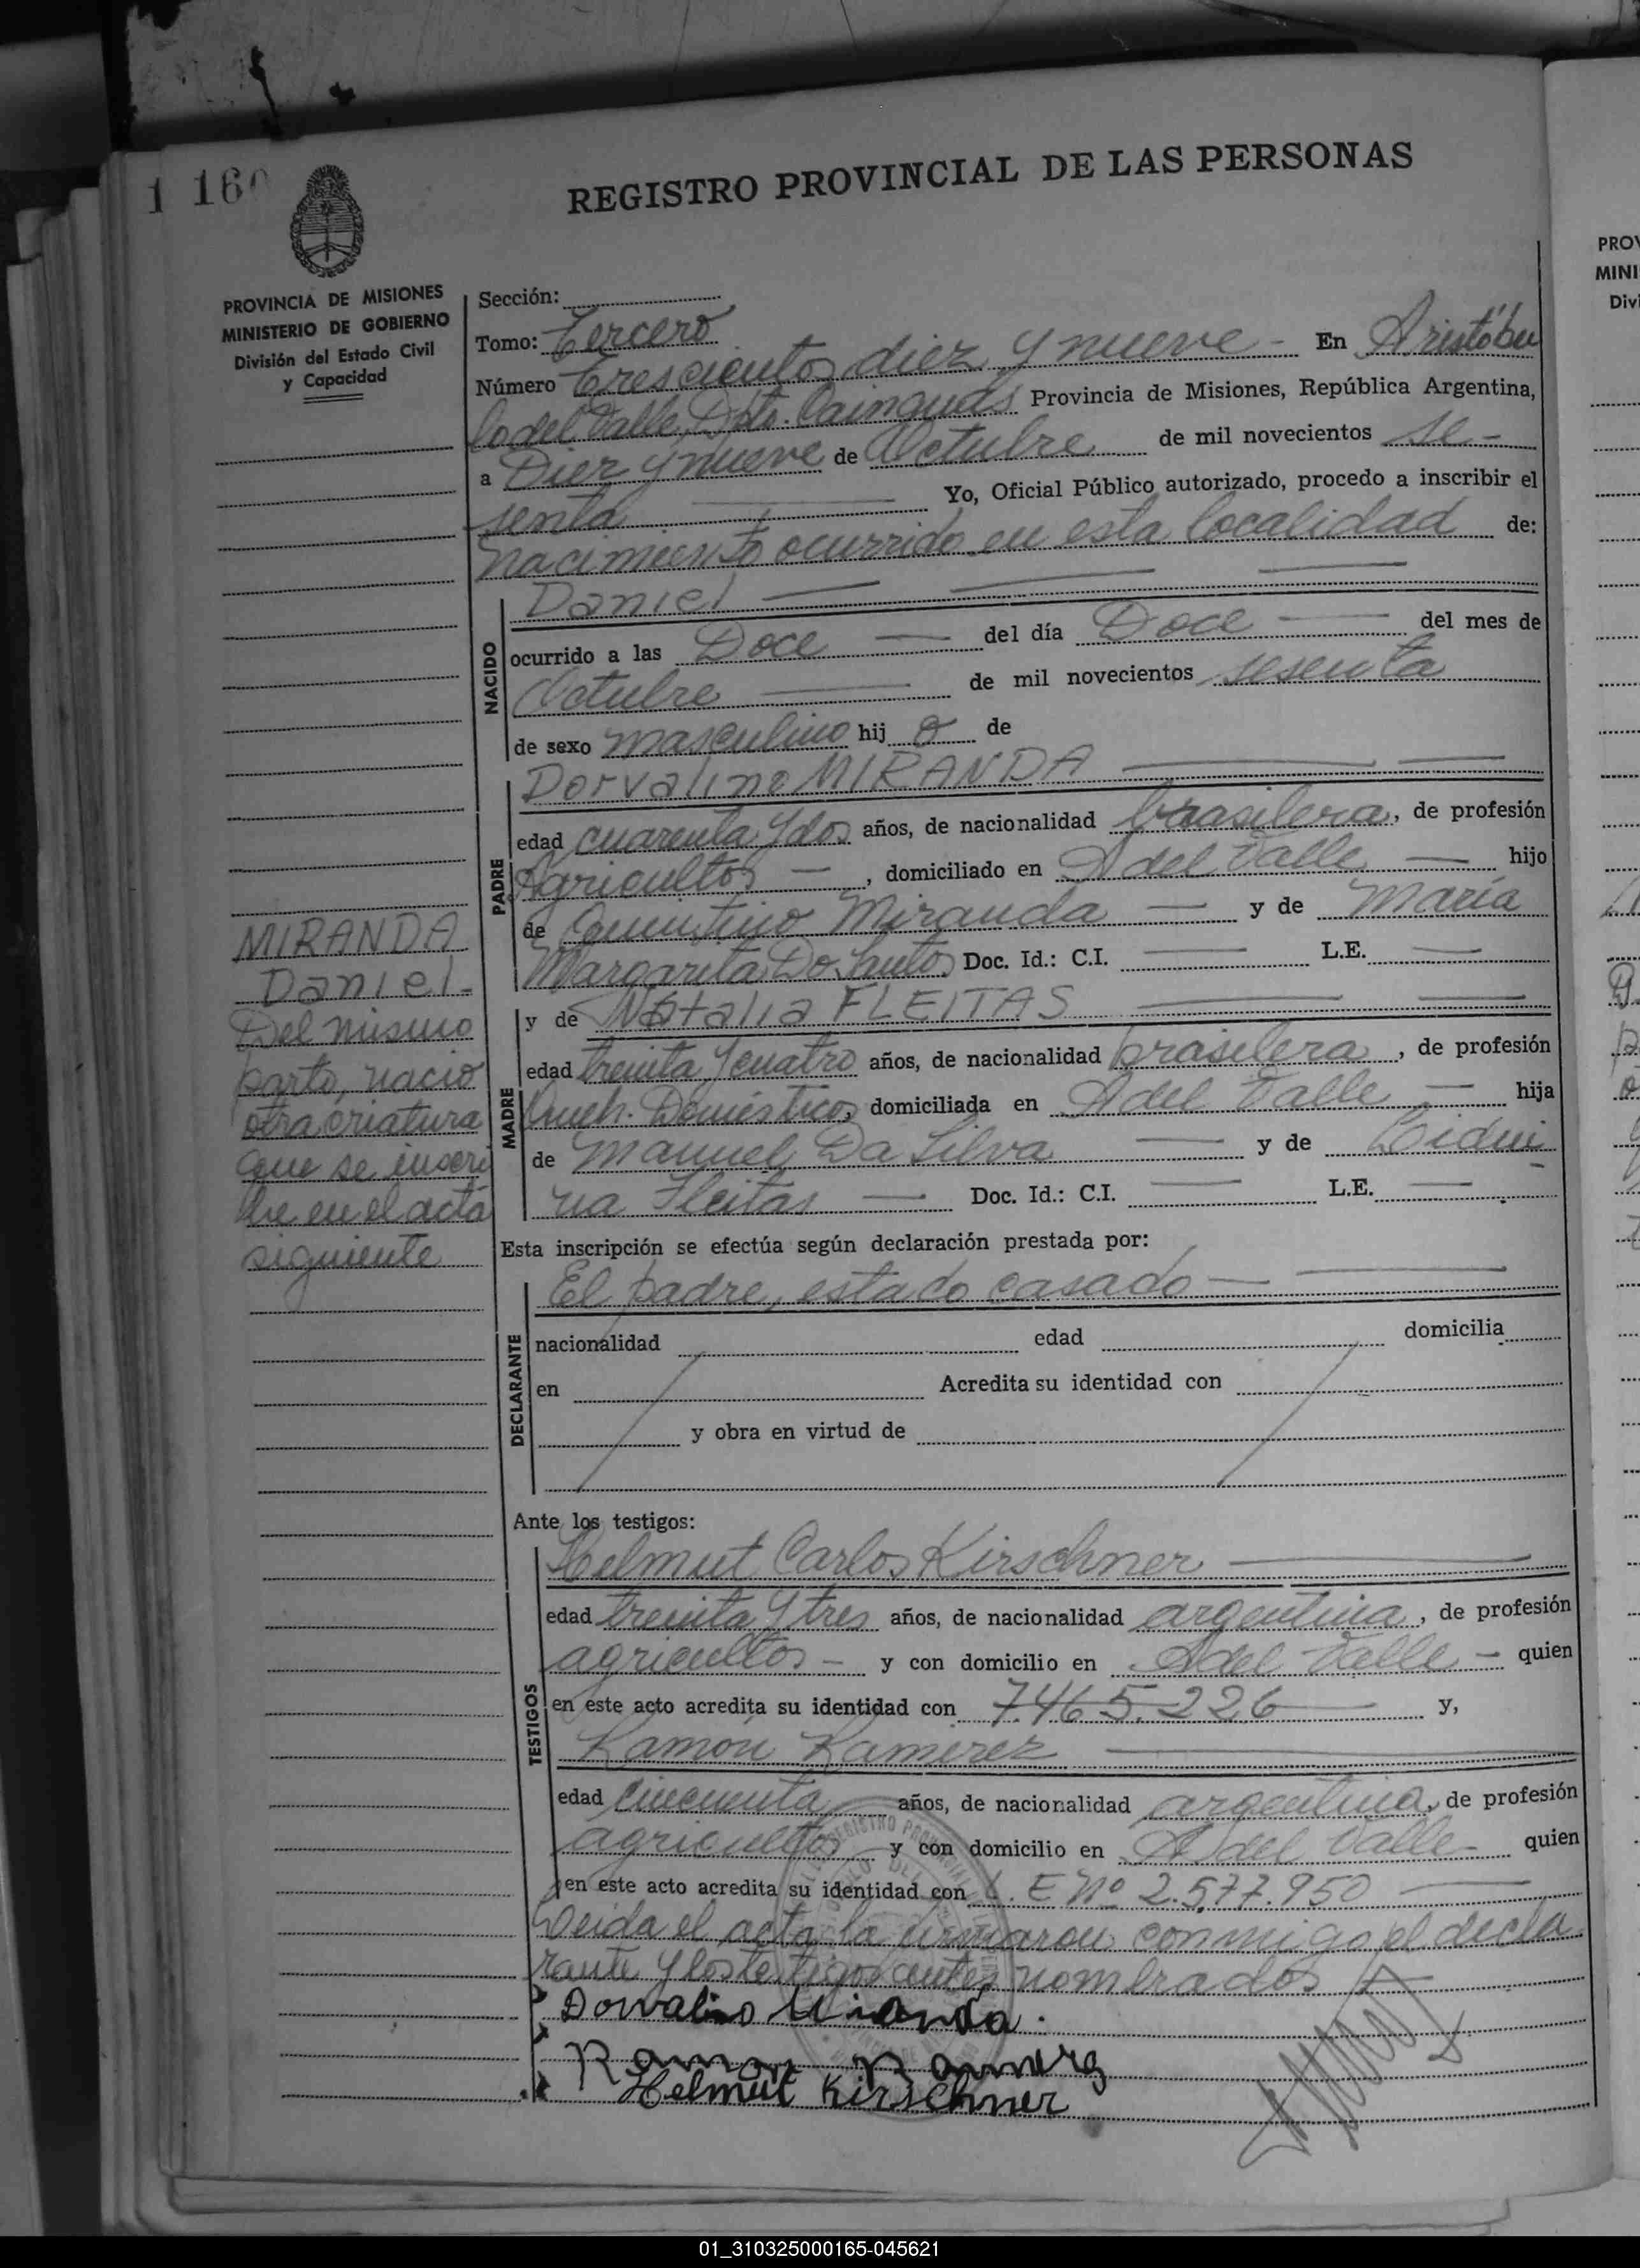 1 160
REGISTRO PROVINCIAL DE LAS PERSONAS
PROVINCIA DE MISIONES
MINISTERIO DE GOBIERNO
División del Estado Civil
y Capacidad
MIRANDA
Daniel.
Del mismo
parto, nacio
otra criatura
que se inscri
be en el acta
siguiente
Sección:
Tomo: Tercero
Número Trescientos diez y nueve - En Aristóbu
lo del Valle, Dpto. Cainguás Provincia de Misiones, República Argentina,
a Diez y nueve de Octubre de mil novecientos se-
senta Yo, Oficial Público autorizado, procedo a inscribir el
nacimiento ocurrido en esta localidad de:
NACIDO
Daniel
ocurrido a las Doce del día Doce del mes de
Octubre de mil novecientos sesenta
de sexo masculino hij o de
PADRE
Dorvalino MIRANDA
edad cuarenta y dos años, de nacionalidad brasilera, de profesión
Agricultor - , domiciliado en A del Valle hijo
de Quintino Miranda y de María
Margarita Do Santos Doc. Id.: C.I. L.E.
MADRE
y de Natalia FLEITAS
edad treinta y cuatro años, de nacionalidad brasilera, de profesión
Queh. Doméstico, domiciliada en A del Valle hija
de Manuel Da Silva y de Lidui
na Fleitas Doc. Id.: C.I. L.E.
Esta inscripción se efectúa según declaración prestada por:
DECLARANTE
El padre, estado casado
nacionalidad edad domicilia
en Acredita su identidad con
y obra en virtud de
Ante los testigos:
TESTIGOS
Helmut Carlos Kirschner
edad treinta y tres años, de nacionalidad argentina, de profesión
agricultor - y con domicilio en A del Valle - quien
en este acto acredita su identidad con 7.465.226 y,
Ramón Ramirez
edad cincuenta años, de nacionalidad argentina, de profesión
agricultor y con domicilio en A del Valle - quien
en este acto acredita su identidad con L. E Nº 2.577.950
Leida el acta la firmaron conmigo el decla
rante y los testigos antes nombrados
Dorvalino Miranda.
Ramon Ramirez
Helmut Kirschner
PROV
MINI
Divi
01_310325000165-045621